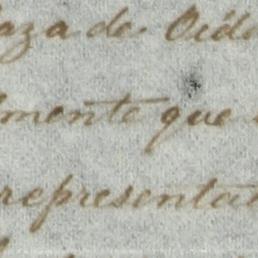 aza de Oido
lmente que
representa